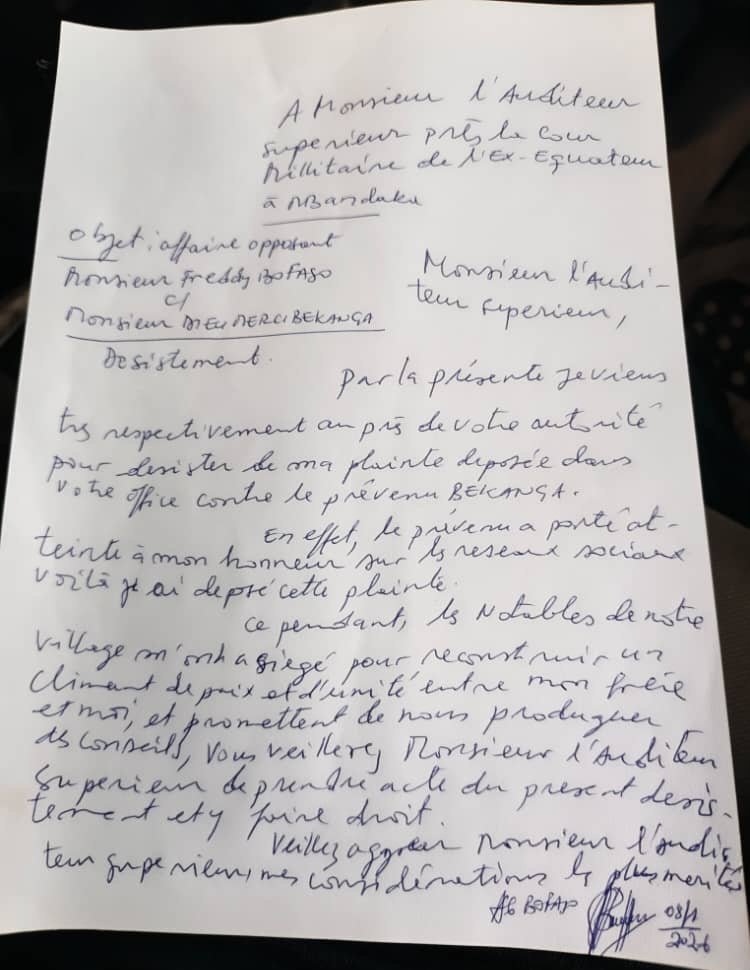 A Monsieur l'Auditeur
superieur près la Cour
Millitaire de l'Ex-Equateur
à MBandaka
Objet : affaire opposant
Monsieur Freddy BOFASO
c/
Monsieur DIEU MERCI BEKANGA
Desistement.
Monsieur l'Audi-
teur superieur,
Par la présente je viens
trs respectivement au prs de votre autorité
pour desister de ma plainte deposée dans
votre office contre le prévenu BEKANGA.
En effet, le prévenu a porté at-
teinte à mon honneur sur ls reseaux sociaux
voilà je ai deposé cette plainte.
Ce pendant, ls Notables de notre
village m'ont assiegé pour reconstruir un
climant de paix et d'unité entre mon frère
et moi, et promettent de nous produguer
ds conseils, Vous veillerez Monsieur l'Auditeur
superieur de prendre acte du present desis-
tement et y faire droit.
Veillez aggréer Monsieur l'audi-
teur superieur, mes considérations ls plus merités
BOFASO
08/1
2026